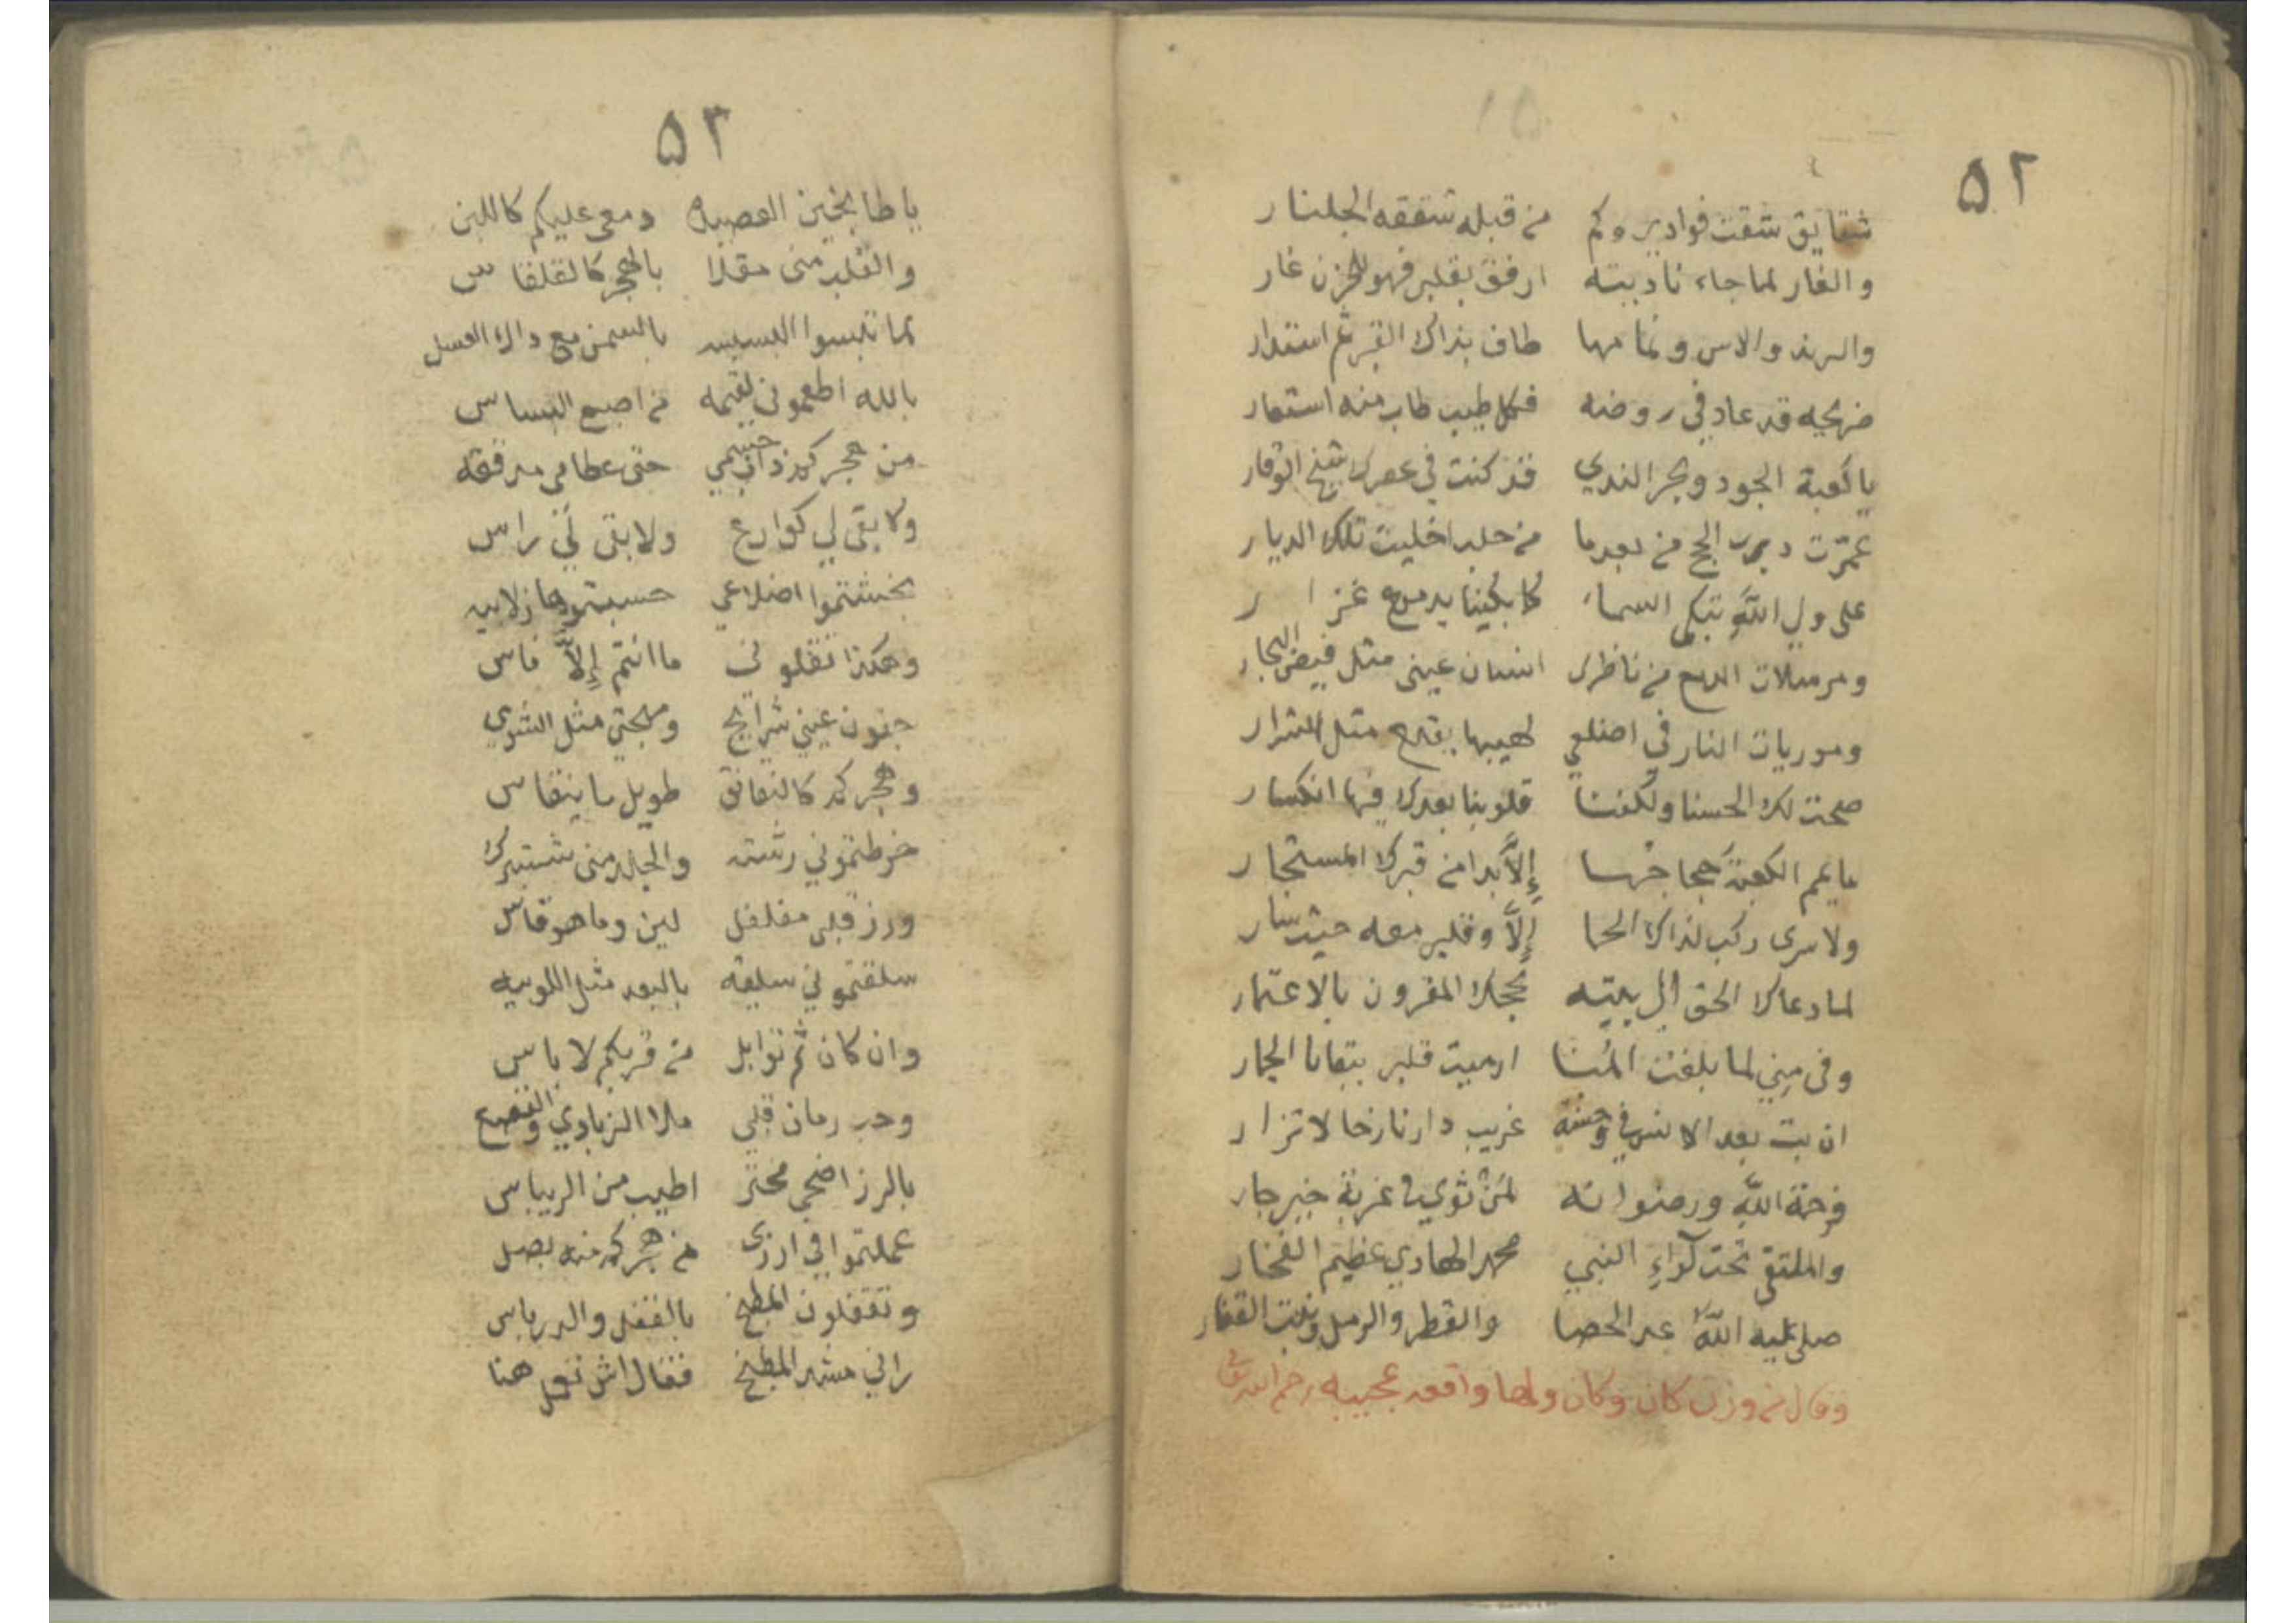 ٥٢
شقايق شقت فوادي وكم من قبله شققه الجلنار
والغار لما جاء ناديته ارفق بقلبي فهو للحزن غار
والرند والاس ونمامها طاف بذاك القبر ثم استدار
ضريحه قد عاد في روضه فكل طيب طاب منه استعار
يا كعبة الجود وبحر الندي قد كنت في عصرك شيخ الوقار
عمّرت درب الحج من بعدما من حلب اخليت تلك الديار
على ولي اللّه تبكي السماء كما بكينا بدموع غزار
ومرسلات الدمع من ناظري انسان عيني مثل فيض البحار
وموريات النار في اضلعي لهيبها يقدح مثل الشرار
صحت لك الحسنا ولكننا قلوبنا بعدك فيها انكسار
ما يمم الكعبة حجاجها إلاّ بدا من قبرك المستجار
ولا سرى ركب لذاك الحما إلاّ وقلبي معه حيث سار
لما دعاك الحق الي بيته بحجك المقرون بالاعتمار
وفي مني لما بلغت المُنا ارميت قلبي ببقايا الجمار
ان بت بعد الانس في وحشة غريب دار نازحا لا تزار
فرحمة اللّه ورضوانه لمن ثوي في غربة خير جار
والملتقى تحت لواءِ النبي محمد الهادي عظيم الفخار
صلى عليه اللّه عد الحصا والقطر والرمل ونبت القفار
وقال من وزن كان وكان ولها واقعه عجيبه رحم الله تعالى
٥٣
يا طابخين العصيبه دمعي عليكم كاللبن
والقلب مني مقلا بالهجر كالقلقاس
لما تلبسوا البسيسه بالسمن مع داك العسل
بالله اطعموني لقيمه من اصبع البساس
من هجركم ذاب جسمي حتى عظامي مدققه
ولا بقى لي كوارع ولا بقى لي راس
بخشتموا اضلاعي حسبتوها زلابيه
وهكذا تقلوني ما انتم إلاّ ناس
جفون عيني شرايح ومهجتي مثل الشوي
وهجركم كالنقانق طويل ما ينقاس
خرطتموني رشته والجلد مني شنبرك
ورز قلبي مفلفل لين وما هو قاس
سلقتموني سليقه بالبعد مثل اللوبيه
وان كان ثم توابل من قربكم لا باس
وحب رمان قلبي ملا الزبادي والقصع
بالرز اضحي مخثر اطيب من الريباس
عملتموا في ارزي من هجركم منه بصل
وتقفلون المطبخ بالقفل والدرباس
راني مشد المطبخ فقال اش تعمل هنا